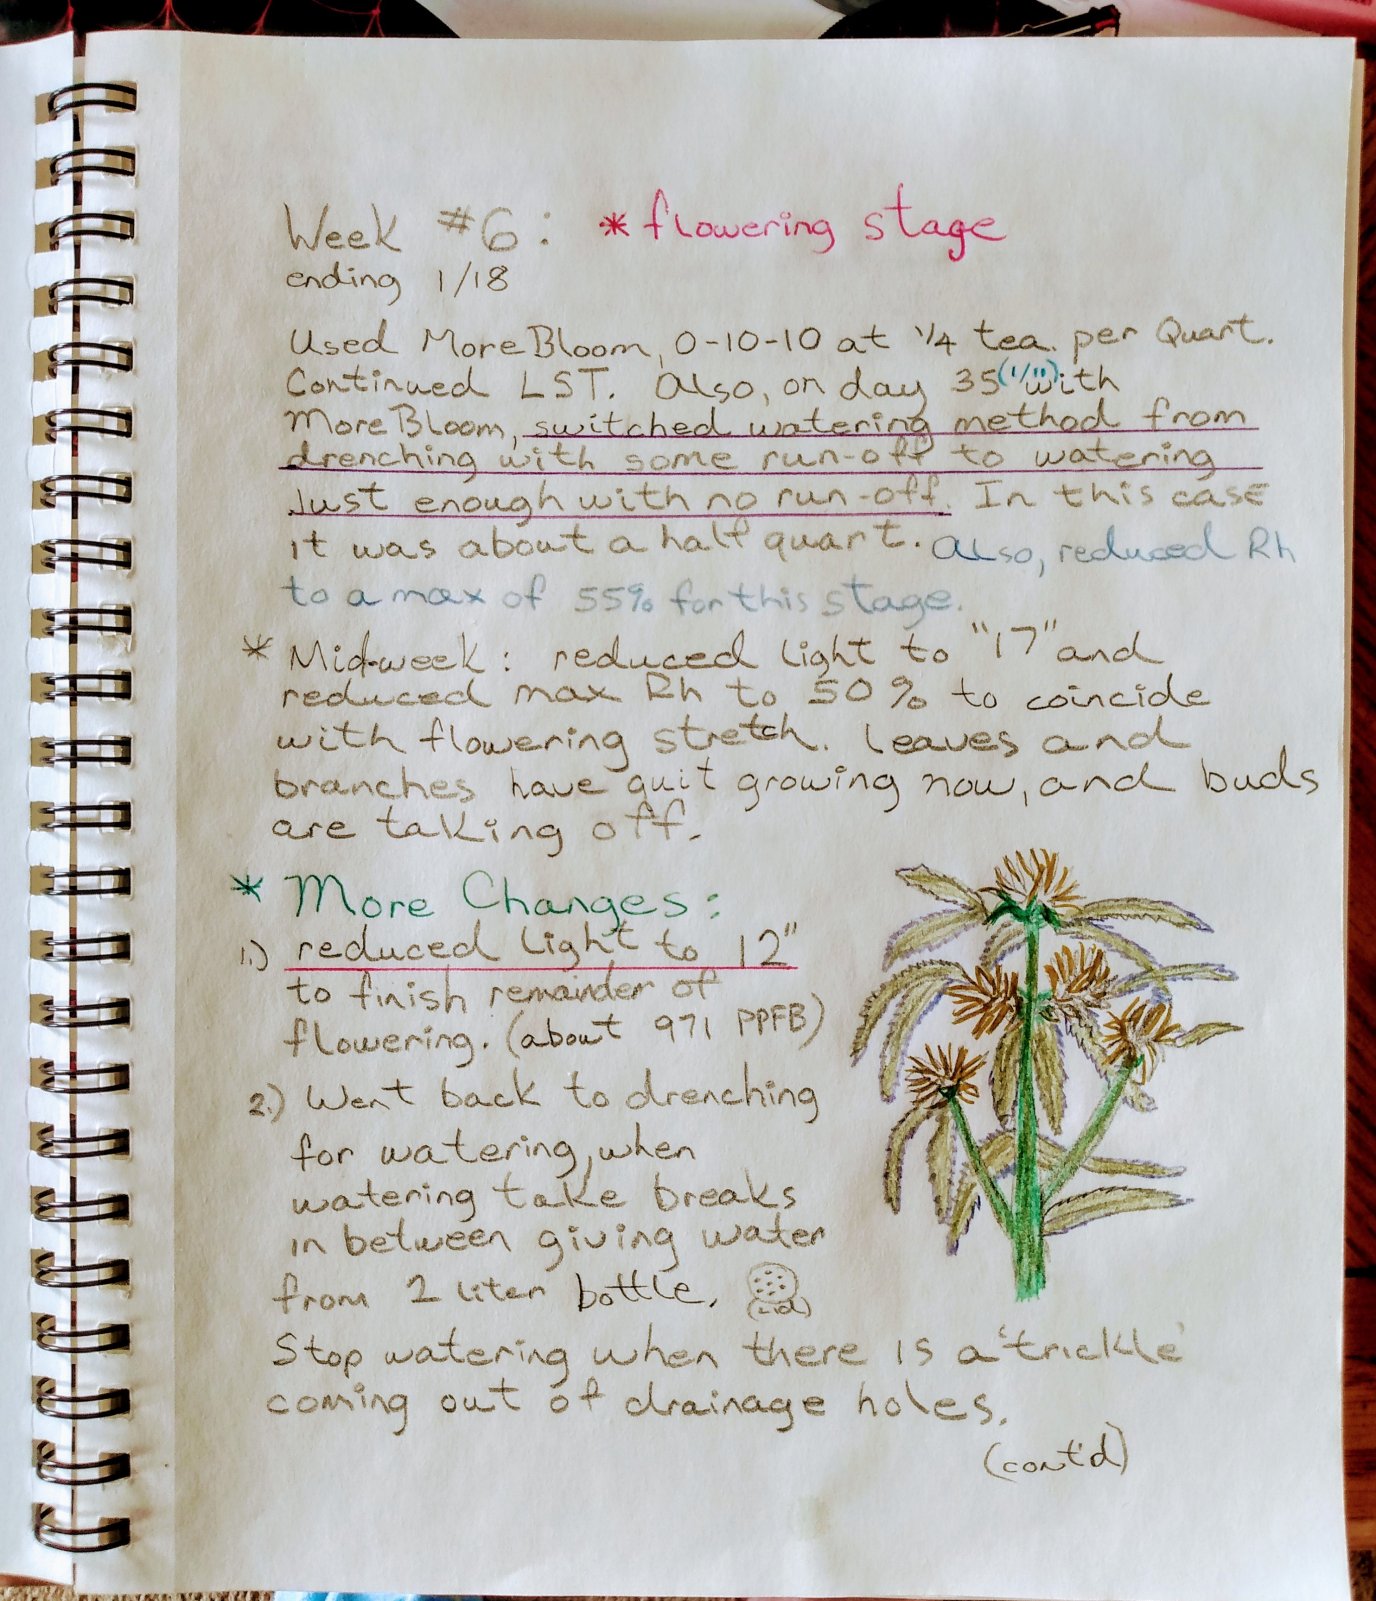 Week #6: * flowering stage
ending 1/18
Used MoreBloom, 0-10-10 at 1/4 tea. per Quart.
Continued LST. Also, on day 35 (1/11) with
MoreBloom, switched watering method from
drenching with some run-off to watering
Just enough with no run-off. In this case
it was about a half quart. Also, reduced Rh
to a max of 55% for this stage.
* Mid-week: reduced light to "17" and
reduced max Rh to 50% to coincide
with flowering stretch. Leaves and
branches have quit growing now, and buds
are taking off.
* More Changes:
1.) reduced light to 12"
to finish remainder of
flowering. (about 971 PPFB)
2.) Went back to drenching
for watering, when
watering take breaks
in between giving water
from 2 liter bottle.
(Lid)
Stop watering when there is a 'trickle'
coming out of drainage holes.
(cont'd)